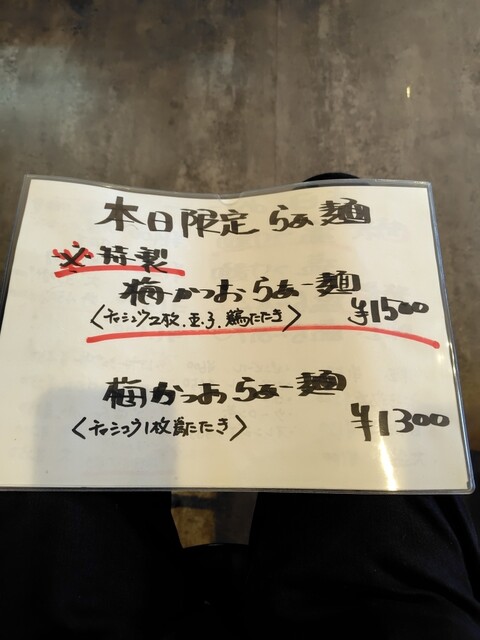 本日限定 らぁ麺
※特製
梅かつおらぁー麺
〈チャシュウ2枚.玉子.鶏たたき〉 ¥1500
梅かつおらぁー麺
〈チャシュウ1枚鶏たたき〉 ¥1300